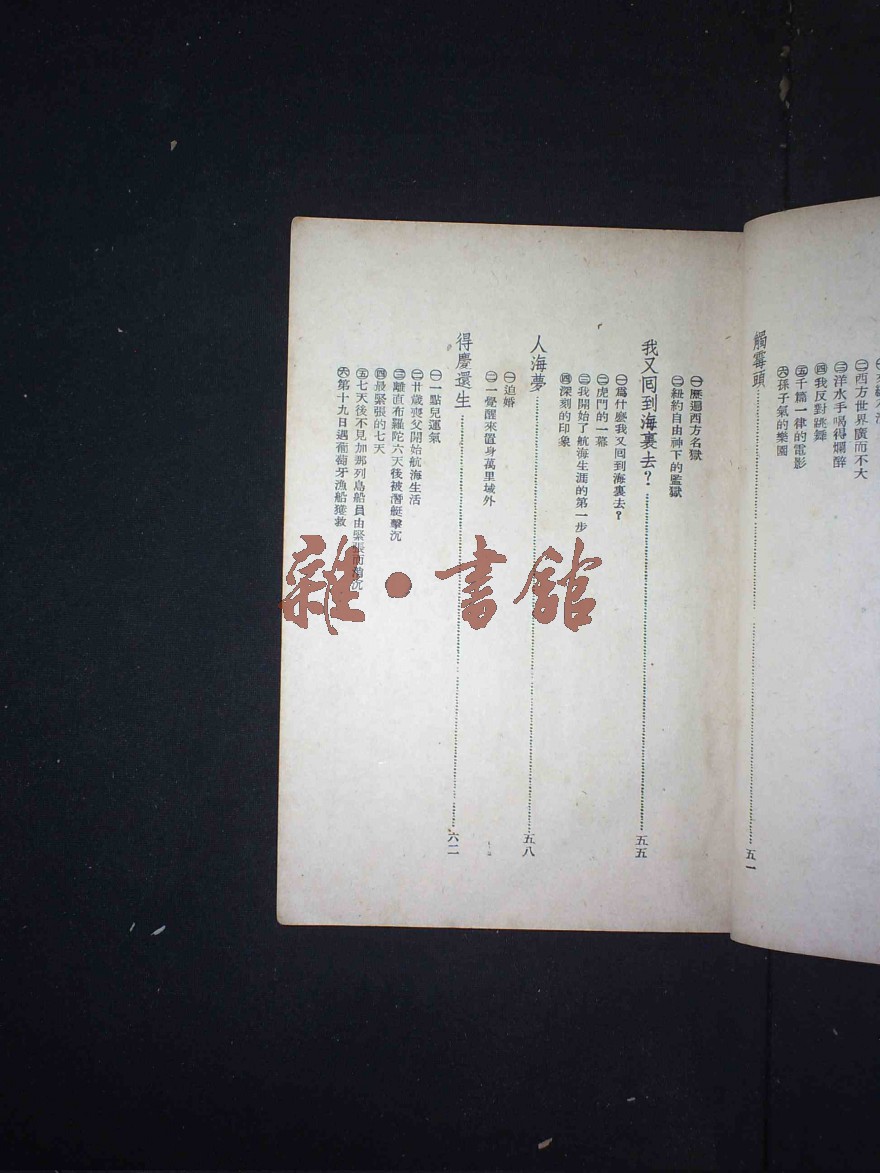 ㊁西方世界廣而不大
㊂洋水手喝得爛醉
㊃我反對跳舞
㊄千篇一律的電影
㊅孫子氣的樂園
觸霉頭……五一
㊀歷迴西方名獄
㊁紐約自由神下的監獄
我又囘到海裏去？……五五
㊀爲什麼我又囘到海裏去？
㊁虎門的一幕
㊂我開始了航海生涯的第一步
㊃深刻的印象
人海夢……五八
㊀迫婚
㊁一覺醒來置身萬里域外
得慶還生……六二
㊀一點兒運氣
㊁廿歲喪父開始航海生活
㊂離直布羅陀六天後被潛艇擊沉
㊃最緊張的七天
㊄七天後不見加那列島船員由緊張而消沉
㊅第十九日遇葡萄牙漁船獲救
雜·書館